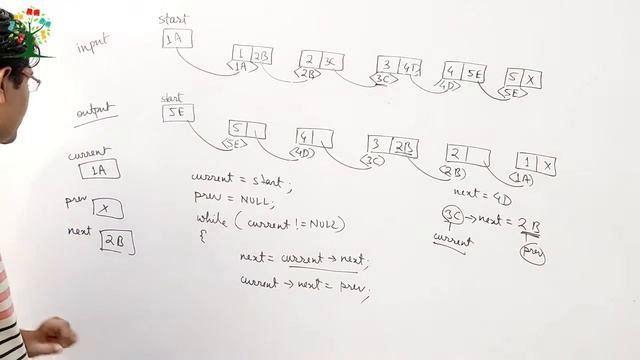 input
start
1A
1 2B
1A
2 3C
2B
3 4D
3C
4 5E
4D
5 X
5E
output
start
5E
5
5E
4
4D
3 2B
3C
2
2B
1 X
1A
current
1A
prev
X
next
2B
current = start;
prev = NULL;
while ( current != NULL)
{
next = current → next;
current → next = prev;
next = 4D
3C → next = 2B
current
prev